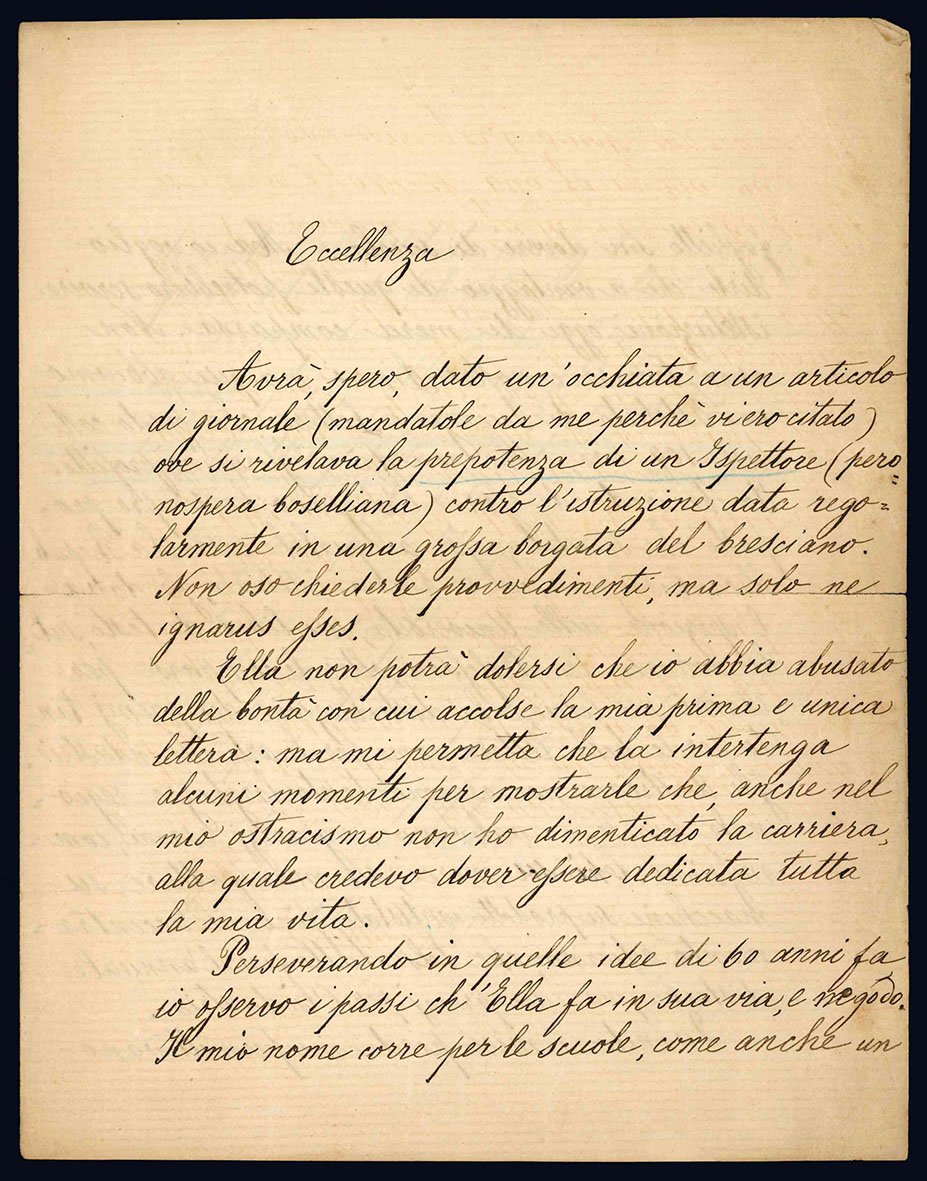 Eccellenza
Avrà, spero, dato un'occhiata a un articolo
di giornale (mandatole da me perchè vi ero citato)
ove si rivelava la prepotenza di un Ispettore (pero=
nospera boselliana) contro l'istruzione data rego=
larmente in una grossa borgata del bresciano.
Non oso chiederle provvedimenti, ma solo ne
ignarus esses.
Ella non potrà dolersi che io abbia abusato
della bontà con cui accolse la mia prima e unica
lettera: ma mi permetta che la intertenga
alcuni momenti per mostrarle che, anche nel
mio ostracismo non ho dimenticato la carriera,
alla quale credevo dover essere dedicata tutta
la mia vita.
Perseverando in quelle idee di 60 anni fa
io osservo i passi ch'Ella fa in sua via, e ne godo.
Il mio nome corre per le scuole, come anche un